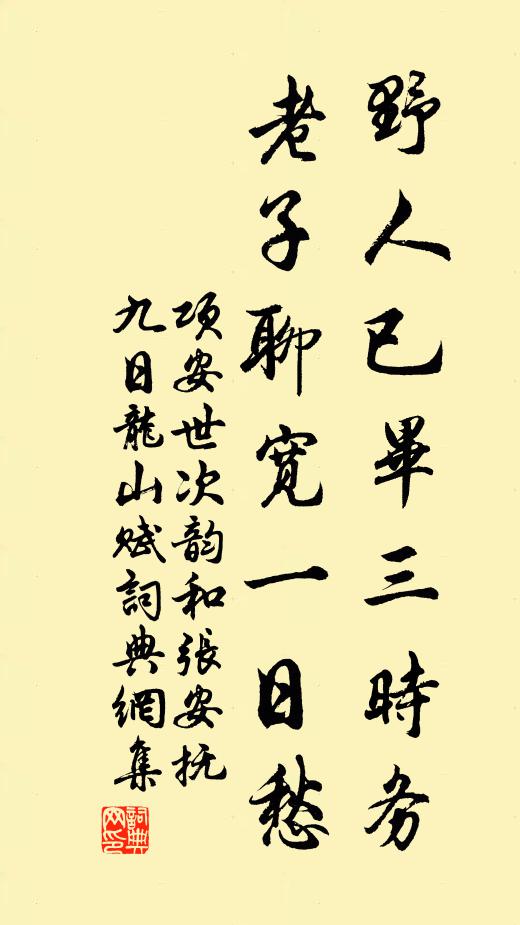 野人已畢三時务
老子聊寛一日愁
项安世次韵和張安抚
九日龍山赋詞典網集
詞典
网印